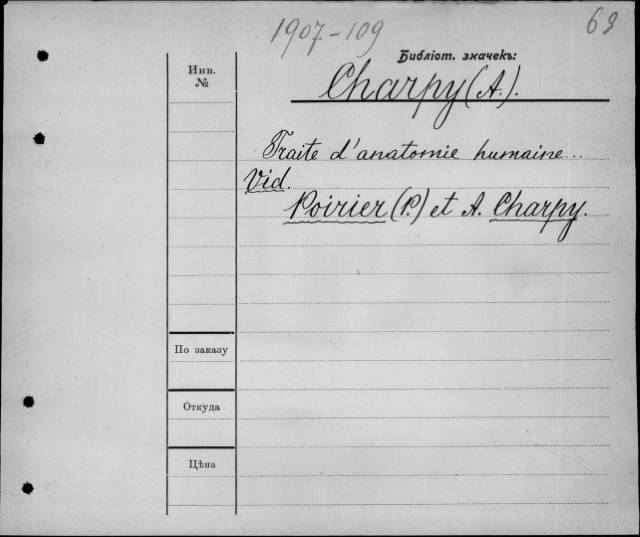 1907-109
69
Библіот. значекъ:
Инв.
№
Charpy (A.).
Traite d'anatomie humaine...
Vid.
Poirier (P.) et A. Charpy.
По заказу
Откуда
Цѣна